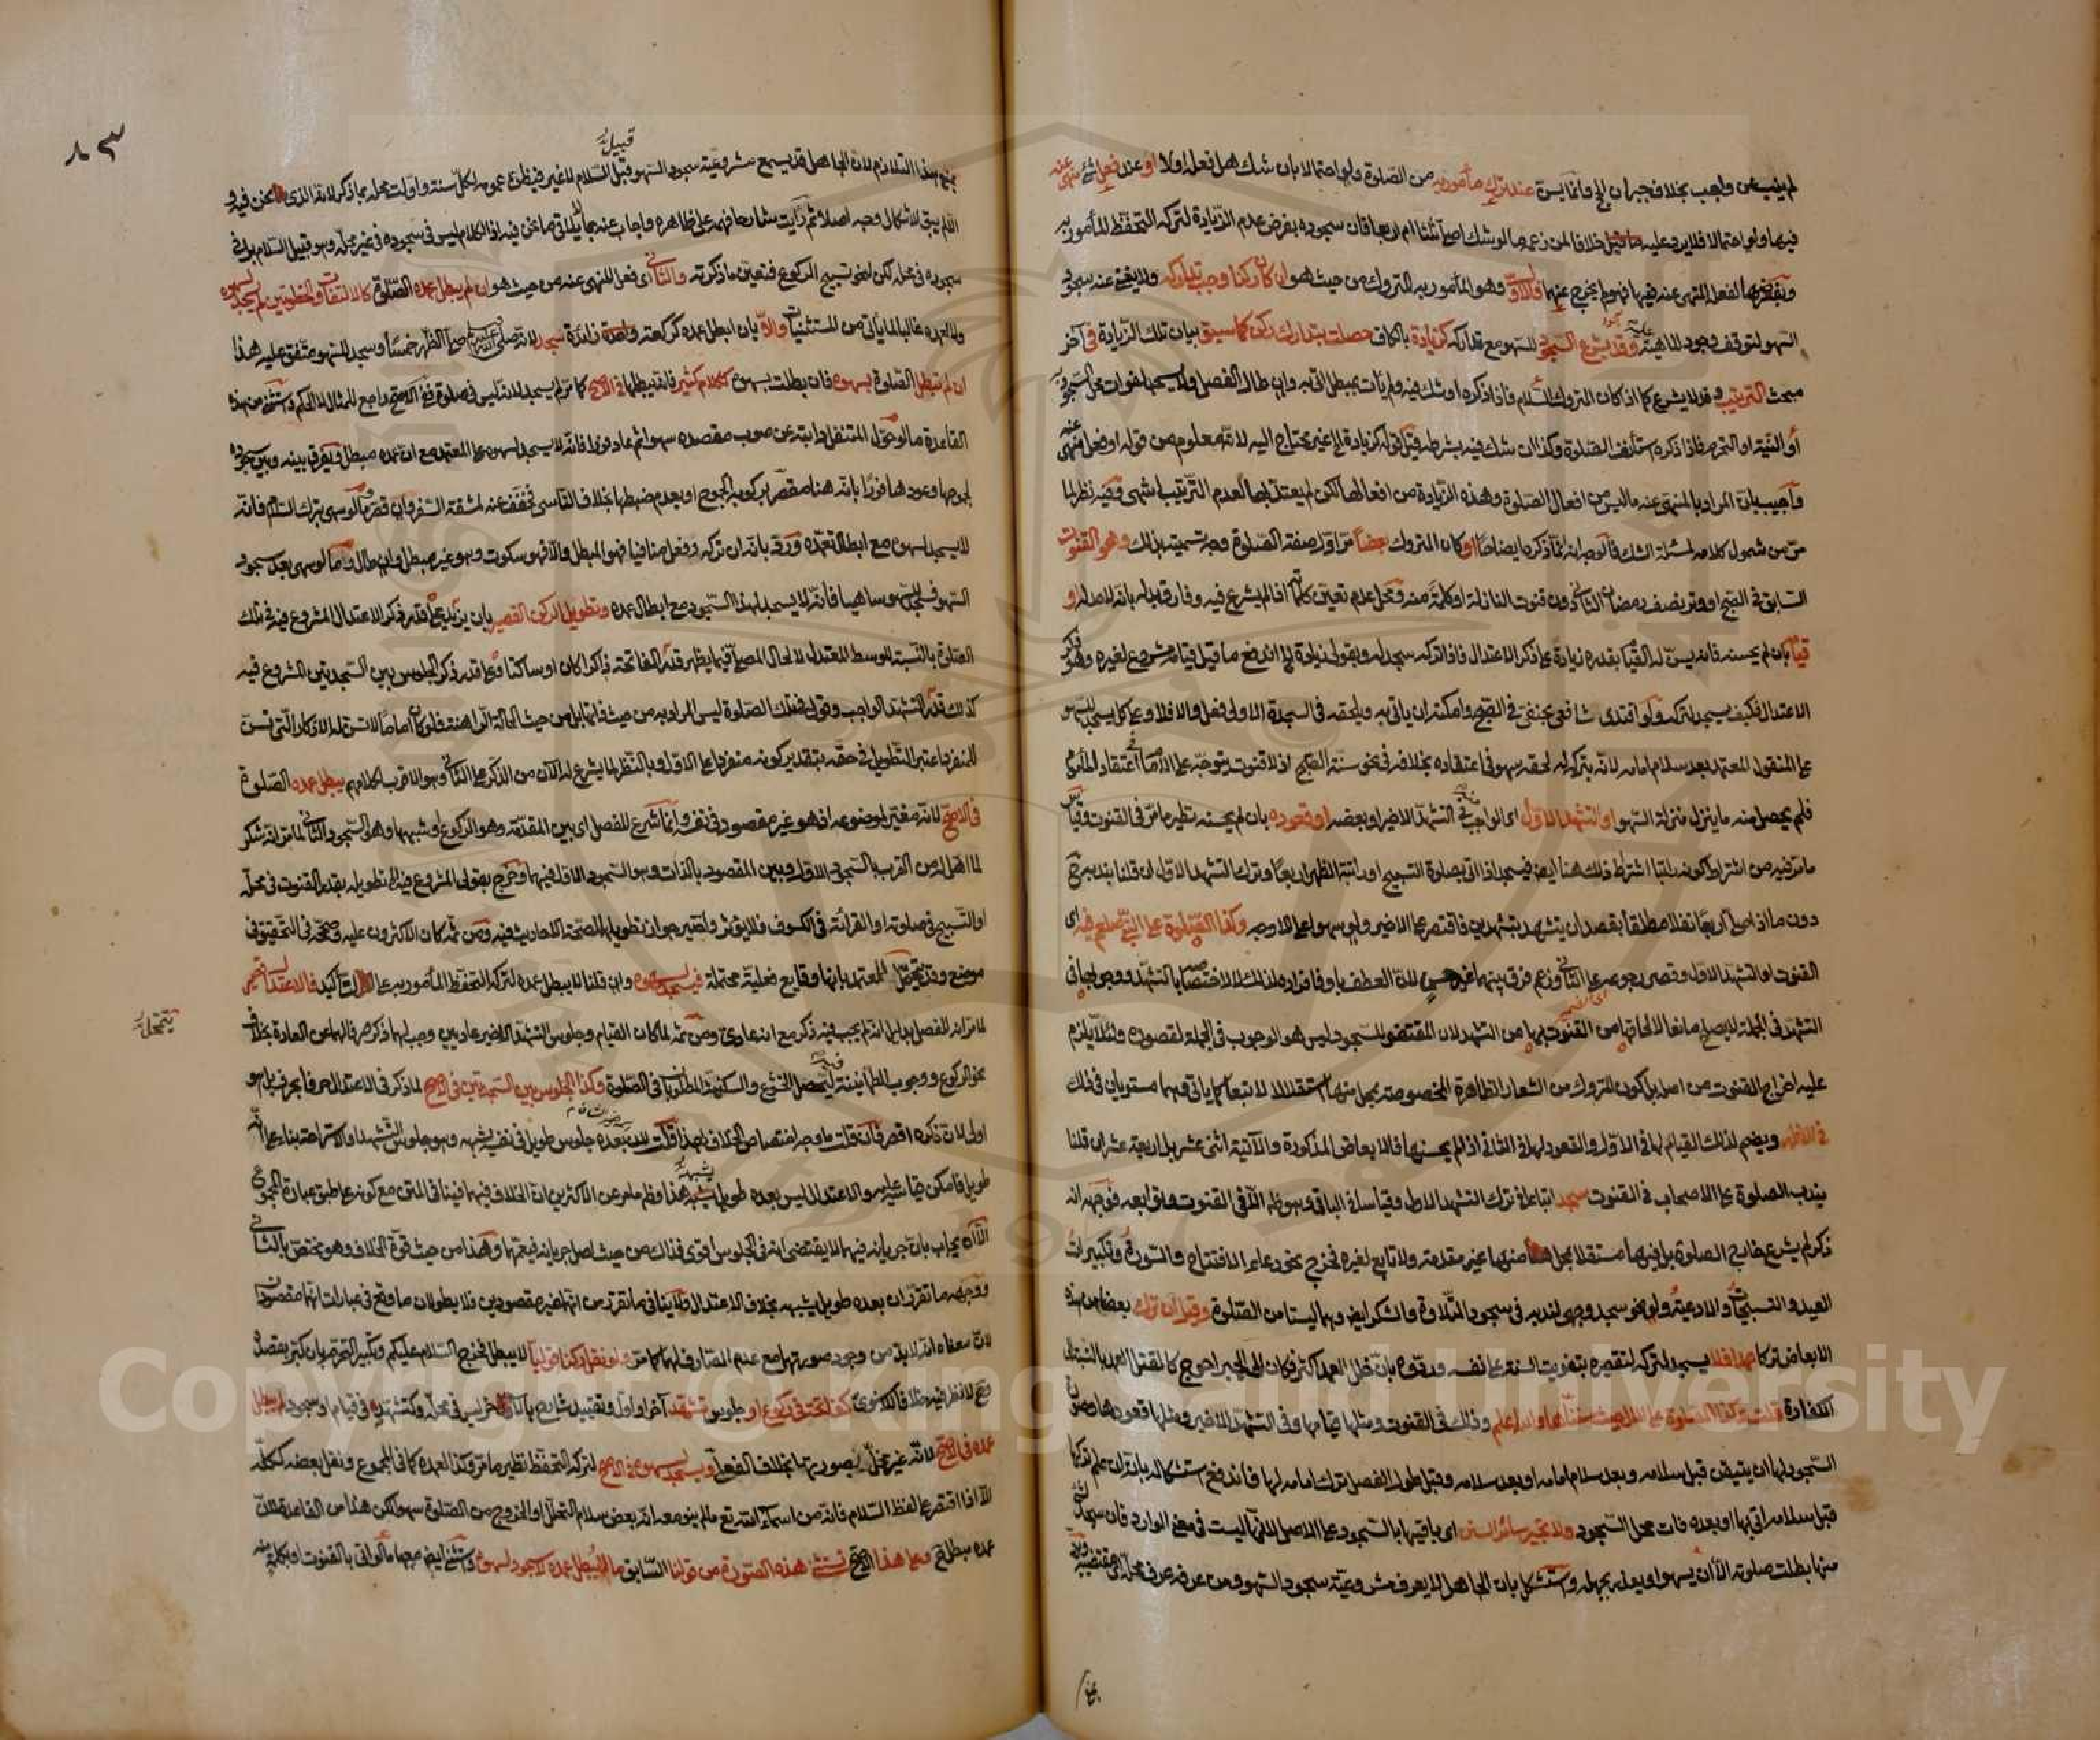 لم ينب عن واجب بخلاف جبران الحج وانما يسن عند ترك مأمور به من الصلوة ولو احتمالا بان شك هل فعله اولا او عند فعل شئ منهى عنه
فيها ولو احتمالا فلا يرد عليه ما قيل خلافا لمن زعمه ما لو شك اصلى ثلثا ام اربعا فان سجوده بفرض عدم الزيادة لتركه التحفظ المأمور به
وبفرضها لفعل المنهى عنه فيها فهو لم يخرج عنهما فالاول وهو المأمور به المتروك من حيث هو ان كان ركنا وجب تداركه ولا يغنى عنه سجود
السهو لتوقف وجود الماهية عليه وقد يشرع السجود للسهو مع تداركه كزيادة بالكاف حصلت بتدارك ركن كما سبق بيان تلك الزيادة فى آخر
مبحث الترتيب وقد لا يشرع كما اذا كان المتروك السلام فاذا ذكره او شك فيه ولم يأت بمبطل اتى به وان طال الفصل ولا يسجد لفوات محل السجود به
او النية او التحرم فاذا ذكره استأنف الصلوة وكذا ان شك فيه بشرطه قيل قوله كزيادة الخ غير محتاج اليه لانه معلوم من قوله او فعل منهى عنه
واجيب بان المراد بالمنهى عنه ما ليس من افعال الصلوة وهذه الزيادة من افعالها لكن لم يعتد بها لعدم الترتيب انتهى وفيه نظر لما
مر من شمول كلامه لمسئلة الشك فالوجه انه انما ذكره ايضاحا او كان المتروك بعضا مر اول صفة الصلوة وجه تسميته بذلك وهو القنوت
السابق فى الصبح او وتر نصف رمضان الثانى دون قنوت النازلة او كلمة منه ومحل عدم تعين كلماته اذا لم يشرع فيه وفارق بدله بانه لا حد له او
قيامه بان لم يحسنه فانه يسن له القيام بقدره زيادة على ذكر الاعتدال فاذا تركه سجد له وبقولى زيادة الخ اندفع ما قيل قيامه مشروع لغيره وهو ذكر
الاعتدال فكيف يسجد لتركه ولو اقتدى شافعى بحنفى فى الصبح وامكنه ان يأتى به ويلحقه فى السجدة الاولى فعل والا فلا وعلى كل يسجد للسهو
على المنقول المعتمد بعد سلام امامه لانه بتركه له لحقه سهوه فى اعتقاده بخلافه فى نحو سنة الصبح اذ لا قنوت يتوجه على الامام فى اعتقاد المأموم
فلم يحصل منه ما ينزل منزلة السهو او التشهد الاول اى الواجب فى التشهد الاخير او بعضه او قعوده بان لم يحسنه نظير ما مر فى القنوت وقياس
ما مر فيه من اشتراط كونه راتبا اشترط ذلك هنا ايضا فيسجد اذا اتى بصلوة التسبيح او راتبة الظهر اربعا وترك التشهد الاول ان قلنا بندبه حينئذ
دون ما اذا صلى اربعا نفلا مطلقا بقصد ان يتشهد بتشهدين فاقتصر على الاخير ولو سهوا على الاوجه وكذا الصلوة على النبى صلعم فيه اى
القنوت او التشهد الاول وقصر رجوعه على الثانى وزعم فرق بينهما غير حسن لان العطف باو فافراده لذلك لا لاختصاصها بالتشهد ووجوبها فى
التشهد فى الجملة لا يصلح مانعا لالحاقها من القنوت بها من التشهد لان المقتضى للسجود ليس هو الوجوب فى الجملة لقصوره ولئلا يلزم
عليه اخراج القنوت من اصله بل كون المتروك من الشعار الظاهرة المخصوصة بمحل منها استقلالا لا تبعا كما يأتى وهما مستويان فى ذلك
فى الاظهر ويضم لذلك القيام لها فى الاول والقعود لها فى الثانى اذا لم يحسنها فالابعاض المذكورة والآتية اثنى عشر بل اربعة عشر ان قلنا
بندب الصلوة على الاصحاب فى القنوت سجد اتباعا فى ترك التشهد الاول وقياسا فى الباقى وهو ظاهر الا فى القنوت وتوابعه فوجهه انه
ذكر لم يشرع خارج الصلوة بل فيها مستقلا بمحل منها غير مقدمة ولا تابع لغيره فخرج نحو دعاء الافتتاح والسورة وتكبيرات
العيد والتسبيحات والادعية ولو نحو سجد وجهى لندبه فى سجود التلاوة والشكر ايضا وهما ليستا من الصلوة وقيل ان ترك بعضا من هذه
الابعاض تركا عمدا فلا يسجد لتركه لتقصيره بتفويت السنة على نفسه وردوه بان خلل العمد اكثر فكان الى الجبر احوج كالقتل العمد بالنسبة الى
الكفارة قلت وكذا الصلوة على الآل حيث سنناها والله اعلم وذلك فى القنوت ومثلها قيامها وفى التشهد الاخير ومثلها قعودها وصورة
السجود لها ان يتيقن قبل سلامه وبعد سلام امامه او بعد سلامه وقبل طول الفصل ترك امامه لها فاندفع استشكاله بانه ان علم تركها
قبل سلامه اتى بها او بعده فات محل السجود ولا تجبر سائر السنن اى باقيها بالسجود على الاصل لانها ليست فى معنى الوارد فان سجد لشئ
منها بطلت صلوته الا ان يسهو او يعذر بجهله واستشكل بان الجاهل لا يعرف مشروعية سجود السهو ومن عرفه عرف محله اى مقتضيه ويرد
بمنع
٨٣
بمنع هذا التلازم لان الجاهل قد يسمع مشروعية سجود السهو قبيل السلام لا غير فيظن عمومه لكل سنة واولت محله بما ذكر لانه الذى نحن فيه و
الا لم يبق للاشكال وجه اصلا ثم رأيت شارحا فهمه على ظاهره واجاب عنه بما لا يلاقى ما نحن فيه اذ الكلام ليس فى سجوده فى غير محله وهو قبيل السلام بل فى
سجوده فى محله لكن لنحو تسبيح الركوع فتعين ما ذكرته والثانى اى فعل المنهى عنه من حيث هو ان لم يبطل عمده الصلوة كالالتفات والخطوتين لم يسجد لسهوه
ولا لعمده غالبا لما يأتى من المستثنيات والا بان ابطل عمده كركعة زائدة سجد لانه صلى الله عليه وسلم صلى الظهر خمسا وسجد للسهو متفق عليه هذا
ان لم تبطل الصلوة بسهوه فان بطلت بسهوه ككلام كثير فانه يبطلها فى الاصح كما مر لم يسجد لانه ليس فى صلوة فى الاصح راجع للمثال لا للحكم واستثنى من هذه
القاعدة ما لو حول المتنفل دابته عن صوب مقصده سهوا ثم عاد فورا فانه لا يسجد لسهوه على المعتمد مع ان عمده مبطل ويفرق بينه وبين سجوده
لجموحها وعودها فورا بانه هنا مقصر بركوبه الجموح او بعدم ضبطها بخلاف الناسى فخفف عنه لمشقة السفر وان قصر وما لو سهى بترك السلام فانه
لا يسجد لسهوه مع ابطال تعمده ورد بانه ان تركه وفعل منافيا فهو المبطل والا فهو سكوت وهو غير مبطل وان طال وما لو سهى بعد سجود
السهو فسجد للسهو ساهيا فانه لا يسجد لهذا السجود مع ابطال عمده وتطويل الركن القصير بان يزيد على قدر ذكر الاعتدال المشروع فيه فى تلك
الصلوة بالنسبة للوسط المعتدل لا لحال المصلى فيما يظهر قدر الفاتحة ذاكرا كان او ساكتا وعلى قدر ذكر الجلوس بين السجدتين المشروع فيه
كذلك قدر التشهد الواجب وقولى فى تلك الصلوة ليس المراد به من حيث ذاتها بل من حيث الحالة الراهنة فلو كان اماما لا تسن له الاذكار التى تسن
للمنفرد اعتبر التطويل فى حقه بتقدير كونه منفردا على الاول وبالنظر لما يشرع له الآن من الذكر على الثانى وهو الاقرب لكلامهم يبطل عمده الصلوة
فى الاصح لانه مغير لموضوعه اذ هو غير مقصود فى نفسه وانما شرع للفصل اى بين المقدمة وهو الركوع او شبهها وهو السجود الثانى لما مر انه شكر
لما اهل له من القرب بالسجود الاول وبين المقصود بالذات وهو السجود الاول فيهما وخرج بقولى المشروع فيه الخ تطويله بقدر القنوت فى محله
او التسبيح فى صلوته او القرائة فى الكسوف فلا يؤثر واختير جواز تطويلهما لصحة الاحاديث فيه ومن ثمه كان الاكثرون عليه وصححه فى التحقيق فى
موضع وقد يتمحل للمعتمد بانها وقايع فعلية محتملة فيسجد لسهوه وان قلنا لا يبطل عمده لتركه التحفظ المأمور به على التأكيد فالاعتدال قصير
لما مر انه للفصل بدليل انه لم يجب فيه ذكر مع انه عادى ومن ثمه لما كان القيام وجلوس التشهد الاخير عاديين وجب لهما ذكر صرفا لهما عن العادة بخلاف
نحو الركوع ووجوب الطمانينة فيه لتحصل الخشوع والسكينة المطلوبا فى الصلوة وكذا الجلوس بين السجدتين فى الاصح لما ذكر فى الاعتدال حرفا بحرف بل هو
اولى لان ذكره اقصر فان قلت ما وجه اختصاص الخلاف بهذا قلت لان بعده جلوس طويل فى نفسه يشبهه وهو جلوس التشهد او الاستراحة بناء على انه
طويل فامكن قياسه عليه والاعتدال ليس بعده طويل يشبهه هذا وظاهر ما مر عن الاكثرين ان الخلاف فيهما فينافى المتن مع كونه على طبق عبارة المجموع
الا ان يجاب بان جريانه فيهما لا يقتضى انه فى الجلوس اقوى فذاك من حيث اصل جريانه فيعمهما وهذا من حيث قوة الخلاف وهو مختص بالثانى
ووجهه ما تقرر ان بعده طويل يشبهه بخلاف الاعتدال ولا ينافى ما تقرر من انهما غير مقصودين فلا يطولان ما وقع فى عبارات انهما مقصودان
لان معناه انه لا بد من وجود صورتهما مع عدم الصارف لهما كما مر ولو نقل ركنا قوليا لا يبطل فخرج السلام عليكم وتكبير التحرم بان كبر بقصده
وقع لا نظر فيه خلافا للاسنوى كفاتحة فى ركوع او جلوس تشهد آخر او اول وتقييد شارح بالاخير ليس فى محله وكتشهد فى قيام او سجود لم تبطل
عمده فى الاصح لانه غير مخل بصورتها بخلاف الفعل ويسجد لسهوه فى الاصح لتركه التحفظ نظير ما مر وكذا العمده كما فى المجموع ونقل بعضه ككله
الا اذا اقتصر على لفظ السلام فانه من اسماء الله تع ما لم ينو معه انه بعض سلام التحلل او الخروج من الصلوة سهوا لكن هذا من القاعدة لان
عمده مبطل ح وعلى هذا الاصح تستثنى هذه الصورة من قولنا السابق ما لا يبطل عمده لا سجود لسهوه واستثنى ايضا معها ما لو اتى بالقنوت او بكلمة منه
يتمحل